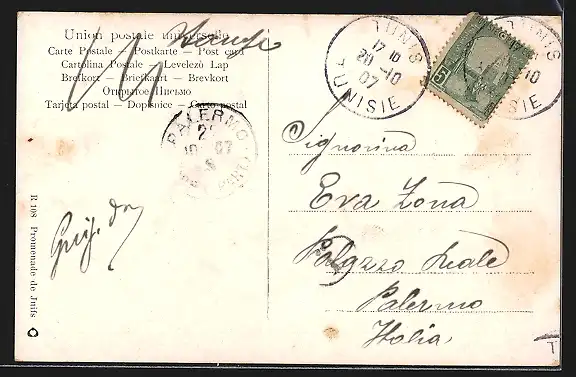 Union postale universelle
Carte Postale — Postkarte — Post card
Cartolina Postale — Levelezö Lap
Brefkort — Briefkaart — Brevkort
Открытое Письмо
Tarjeta postal — Dopisnice — Carto postal
TUNIS
17 10
20 -10
07
TUNISIE
TUNIS
10
TUNISIE
5
PALERMO
10 07
Signorina
Eva Zona
Palazzo Reale
Palermo
Italia
R 108 Promenade de Juifs
T